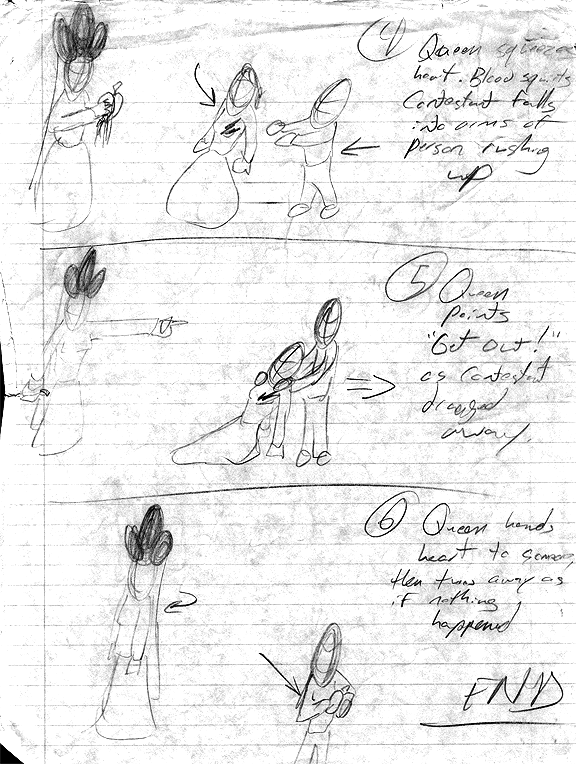 4 Queen squeezes
heart. Blood squirts
Contestant falls
into arms of
person rushing
up
5 Queen
points
"Get Out!"
as Contestant
dragged
away.
6 Queen hands
heart to someone,
then turns away as
if nothing
happened
END